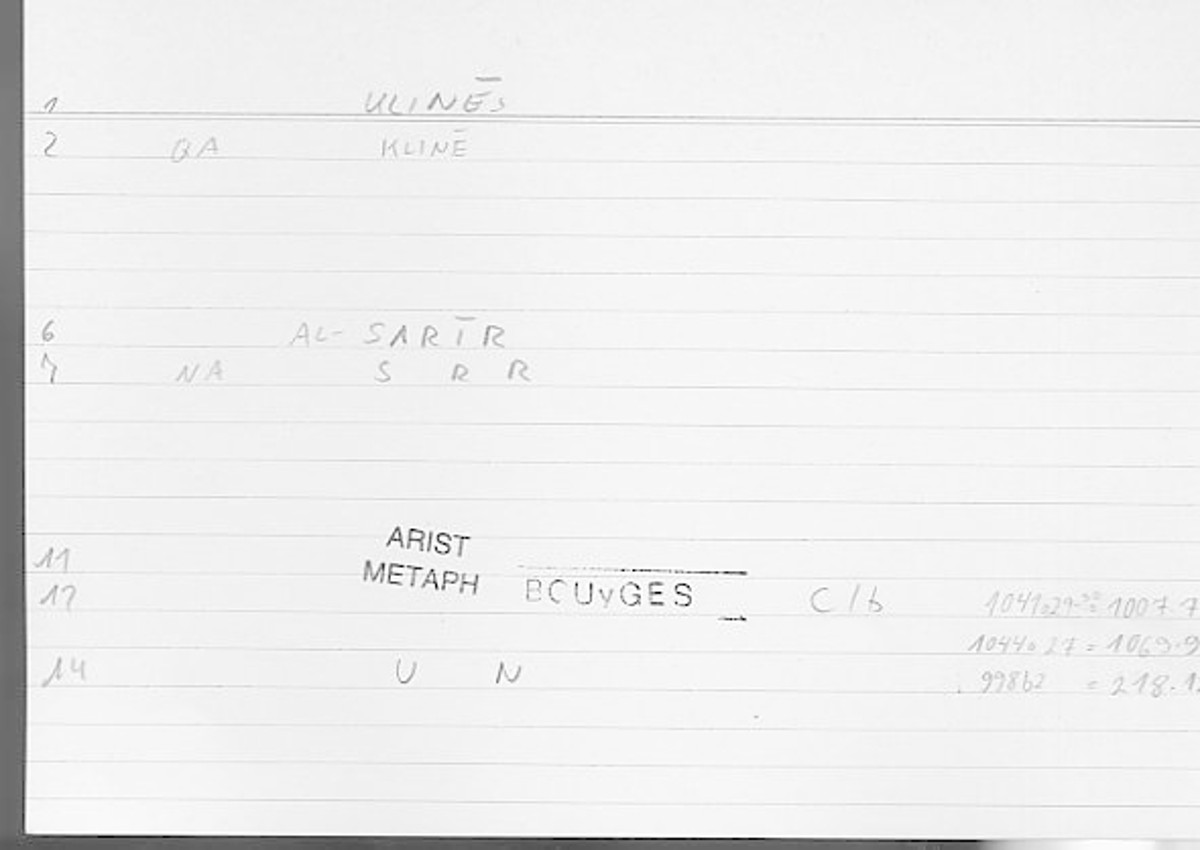 1 KLINĒS
2 QA KLINĒ
6 AL-SARĪR
7 NA S R R
11 ARIST
12 METAPH BOUyGES C/b 1041a29-30 = 1007.7
1044a27 = 1069.9
14 U N 998b2 = 218.1